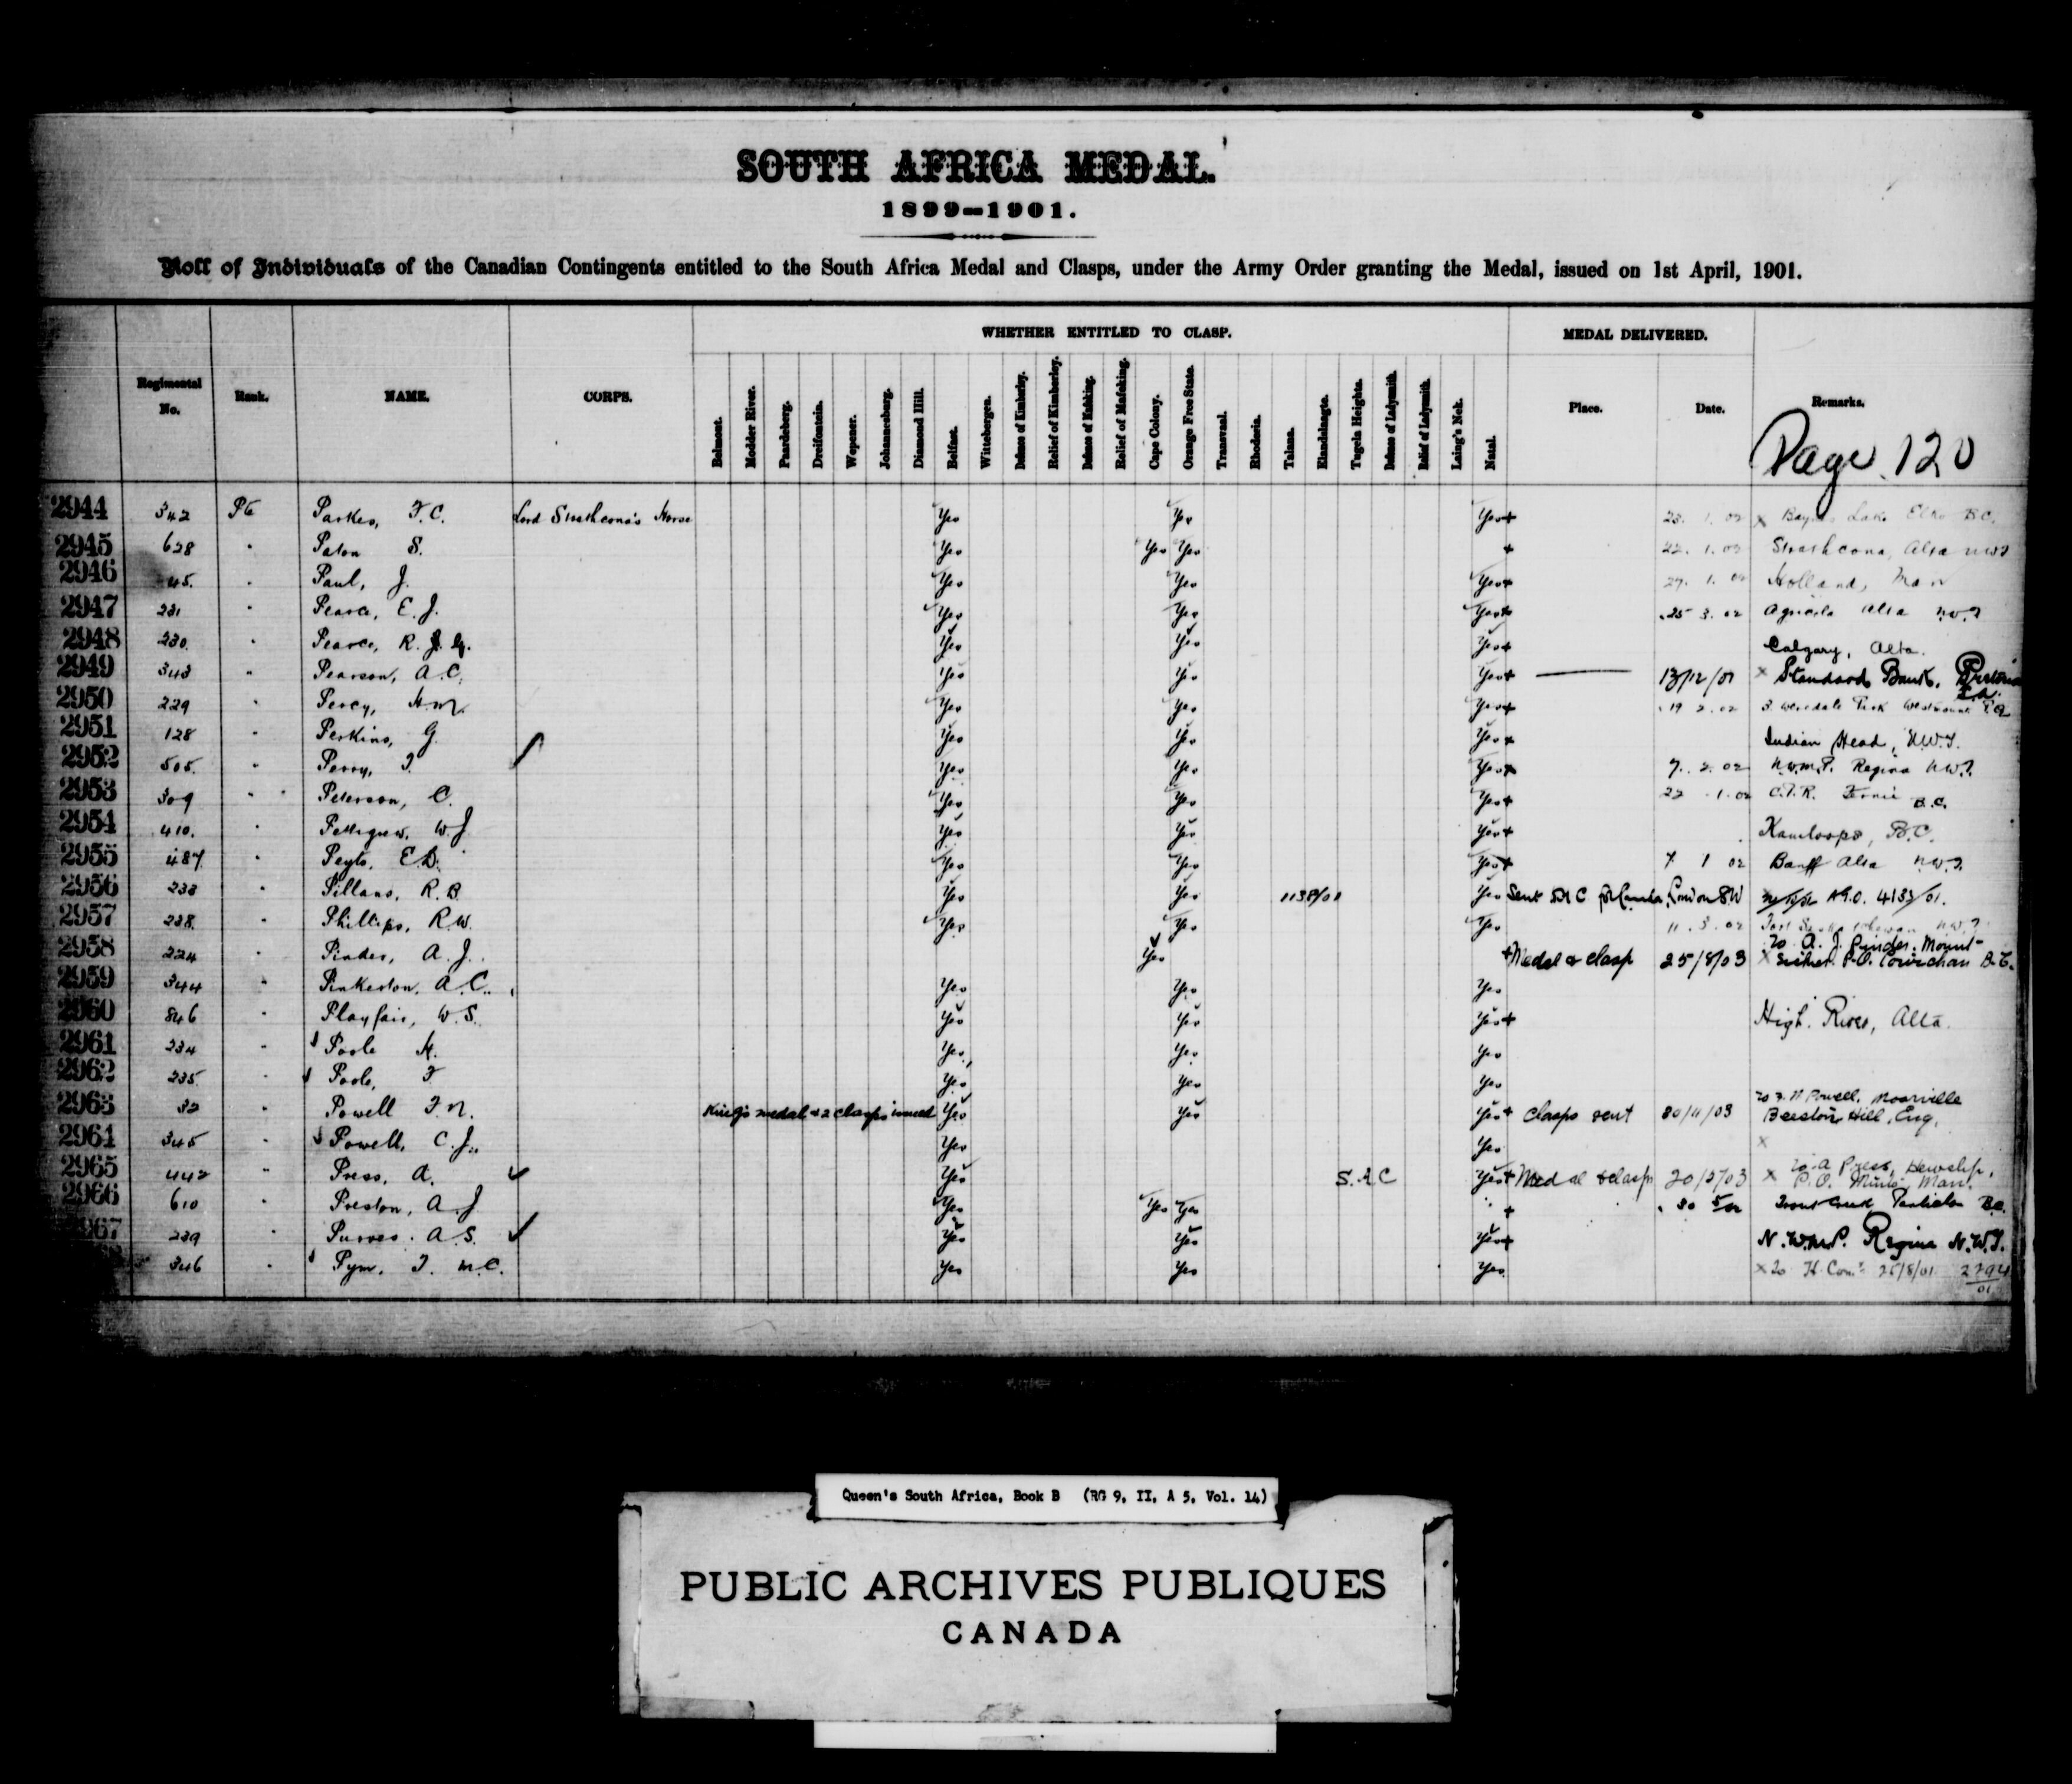 SOUTH AFRICA MEDAL.
1899-1901.
Roll of Individuals of the Canadian Contingents entitled to the South Africa Medal and Clasps, under the Army Order granting the Medal, issued on 1st April, 1901.
WHETHER ENTITLED TO CLASP. MEDAL DELIVERED.
Regimental No. Rank. NAME. CORPS. Belmont. Modder River. Paardeberg. Dreifontein. Wepener. Johannesburg. Diamond Hill. Belfast. Wittebergen. Defense of Kimberley. Relief of Kimberley. Defense of Mafeking. Relief of Mafeking. Cape Colony. Orange Free State. Transvaal. Rhodesia. Talana. Elandslaagte. Tugela Heights. Defense of Ladysmith. Relief of Ladysmith. Laing's Nek. Natal. Place. Date. Remarks.
Page 120
2944 342 Pte Parkes, F.C. Lord Strathcona's Horse Yes Yes Yes+ 23. 1. 02 x Lake Elko B.C.
2945 628 " Paton S. Yes Yes Yes + 22. 1. 02 Strathcona, Alta NWT
2946 45. " Paul, J. Yes Yes Yes+ 27. 1. 02 Holland, Man
2947 231 " Pearce, E.J. Yes Yes Yes+ 25 3. 02 Agricola Alta N.W.T
2948 230. " Pearce, R.J.G. Yes Yes Yes+ Calgary, Alta.
2949 343 " Pearson, A.C. Yes Yes Yes+ 13/12/01 x Standard Bank, Pretoria S.A.
2950 229 " Percy, H.M. Yes Yes Yes+ 19 2. 02 3 Weredale Park Westmount P.Q
2951 128 " Perkins, G. Yes Yes Yes+ Indian Head, N.W.T.
2952 505. " Perry, Yes Yes Yes+ 7. 2. 02 N.W.M.P. Regina N.W.T.
2953 309 " Peterson, C. Yes Yes Yes+ 22 1. 02 C.P.R. Fernie B.C.
2954 410. " Pettigrew, W.J. Yes Yes Yes+ Kamloops, B.C.
2955 487 " Peyto, E.W. Yes Yes Yes+ 7 1 02 Banff Alta N.W.T.
2956 233 " Pillans, R.B. Yes Yes 1138/01 Yes Sent H C for Canada, London SW A.G.O. 4133/01.
2957 238. " Phillips, R.W. Yes Yes Yes 11. 3. 02 Fort Saskatchewan N.W.T.
2958 224 " Pinder, A.J. Yes + Medal & clasp 25/8/03 x To A. J. Pinder, Mount Sicker P.O. Cowichan B.C.
2959 344 " Pinkerton, A.C. Yes Yes Yes
2960 546 " Playfair, W.S. Yes Yes Yes+ High River, Alta.
2961 234 " Poole H. Yes Yes Yes
2962 235 " Poole, F Yes Yes Yes
2963 32 " Powell F.N. King's medal & 2 clasps issued Yes Yes Yes+ Clasps sent 30/4/03 To F. N Powell, Moorville Beeston Hill, Eng.
2964 345 " Powell, C.J. Yes Yes x
2965 442 " Press, A. Yes S.A.C Yes+ Medal & clasp 20/2/03 x To A Press, P.O. Man.
2966 610 " Preston, A.J Yes Yes Yes + 30 5/02 Trout Creek Penticton B.C.
2967 239 " Purves. A.S. Yes Yes Yes+ N.W.M.P. Regina N.W.T.
346 " Pym, T. M.C. Yes Yes Yes x To H Com 25/8/01 2794/01
Queen's South Africa, Book B (RG 9, II, A 5, Vol. 14)
PUBLIC ARCHIVES PUBLIQUES
CANADA